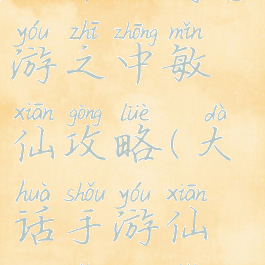 yóu zhī zhōng mǐn
游之中敏
xiān gōng lüè dà
仙攻略(大
huà shǒu yóu xiān
话手游仙